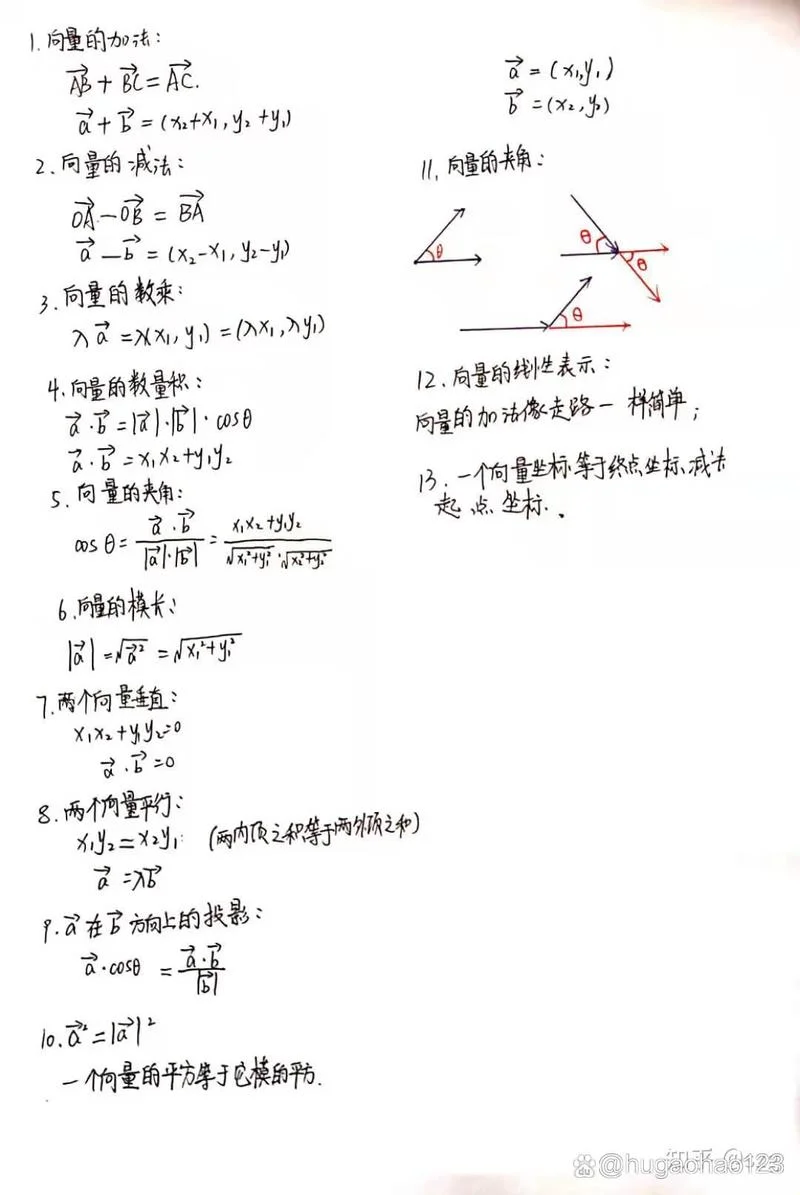 1.向量的加法:
AB→+BC→=AC→.
a→+b→=(x₂+x₁,y₂+y₁)
2.向量的减法:
OA→-OB→=BA→
a→-b→=(x₂-x₁,y₂-y₁)
3.向量的数乘:
λa→=λ(x₁,y₁)=(λx₁,λy₁)
4.向量的数量积:
a→·b→=|a→|·|b→|·cosθ
a→·b→=x₁x₂+y₁y₂
5.向量的夹角:
cosθ=a→·b→/|a→|·|b→|=x₁x₂+y₁y₂/√x₁²+y₁²·√x₂²+y₂²
6.向量的模长:
|a→|=√a→²=√x₁²+y₁²
7.两个向量垂直:
x₁x₂+y₁y₂=0
a→·b→=0
8.两个向量平行:
x₁y₂=x₂y₁ (两内项之和等于两外项之和)
a→=λb→
9.a→在b→方向上的投影:
a→·cosθ=a→·b→/|b→|
10.a→²=|a→|²
一个向量的平方等于它模的平方.
a→=(x₁,y₁)
b→=(x₂,y₂)
11.向量的夹角:
θ
θ
θ
θ
12.向量的线性表示:
向量的加法像走路一样简单;
13.一个向量坐标等于终点坐标减去
起点坐标.
知乎 @123
@hugaohao123